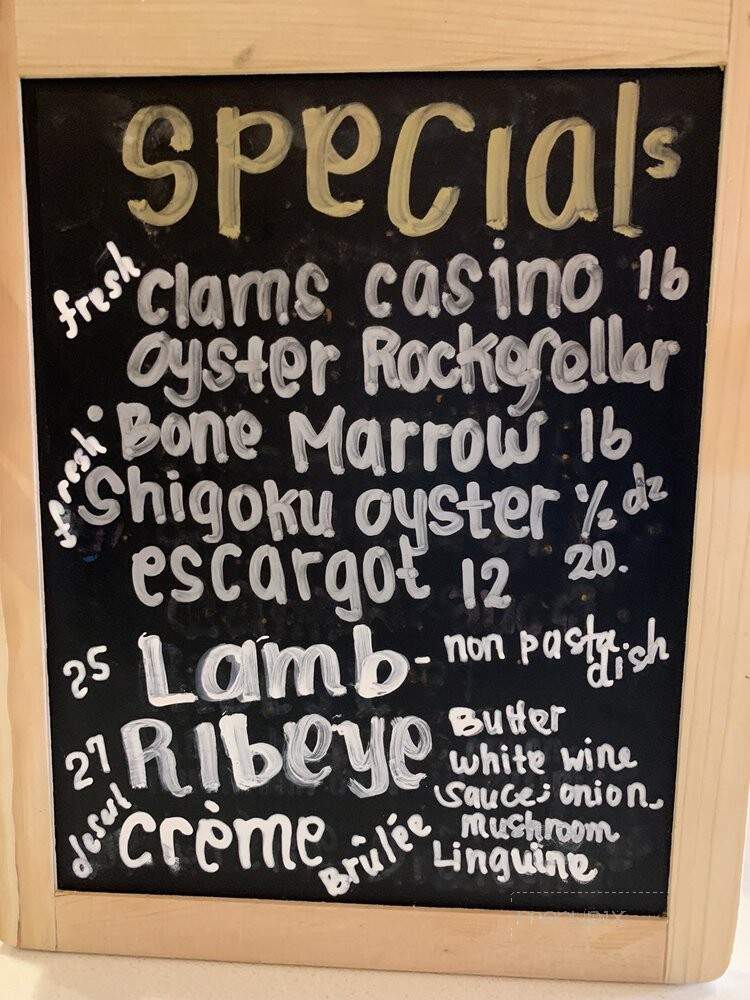 Specials
fresh clams casino 16
oyster Rockefeller
fresh Bone Marrow 16
Shigoku oyster ½ dz
escargot 12 20.
25 Lamb - non pasta dish
27 Ribeye Butter
white wine
sauce; onion,
mushroom
Linguine
crème Brûlée